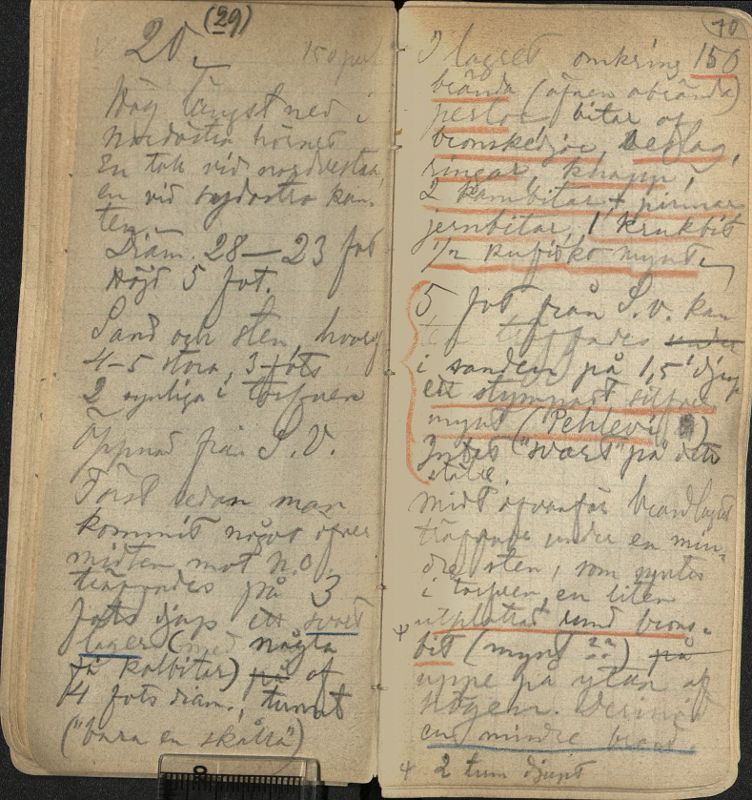 20.
(29)
150 perl
Hög längst ned i
nordöstra hörnet
En tall vid nordvestra,
en vid sydöstra kan-
ten.
Diam. 28—23 fot
Höjd 5 fot.
Sand och sten, hvaraf
4-5 stora, 3 fots
2 synliga i torfven
Öppnad från S.V.
Först sedan man
kommit något öfver
midten mot N.O.
träffades på 3
fots djup ett svart
lager (med några
få kolbitar) på af
4 fots diam., tunnt
("bara en skåra")
40
I lagret omkring 150
brända (äfven obrända)
perlor, bitar af
bronskedjor, beslag,
ringar, knapp,
2 kambitar + pinnar
jernbitar, 1 krukbit
1/2 kufiskt mynt
5 fot från S.V. kan
ten träffades under
i sanden på 1,5' djup
ett stympadt silfver
mynt (Pehlevi)
Intet "svart" på detta
ställe.
Midt ofvanför brandlagret
träffades under en min-
dre sten, som syntes
i torfven, en liten
utplattad rund brons-
bit (mynt ??) på
uppe på ytan af
högen. Dermed
en mindre brand.
2 tum djupt